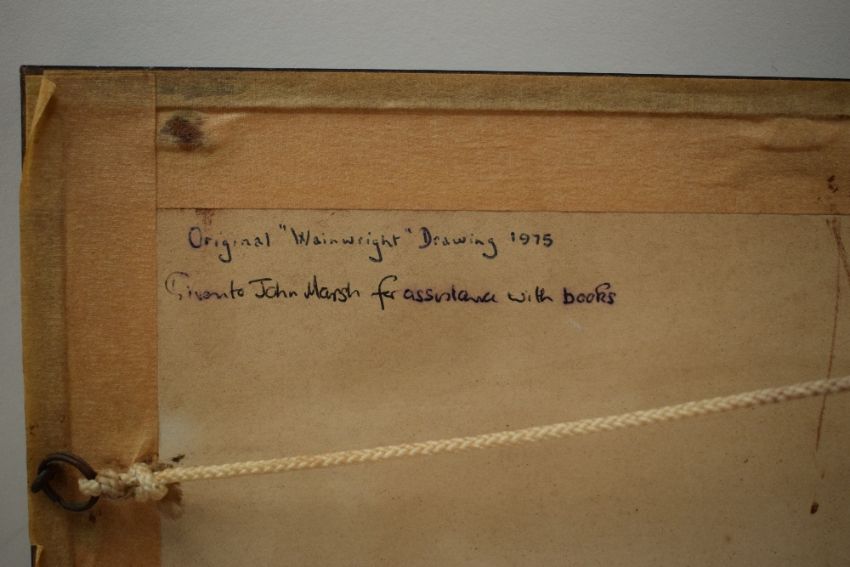 Original "Wainwright" Drawing 1975
Given to John Marsh for assistance with books